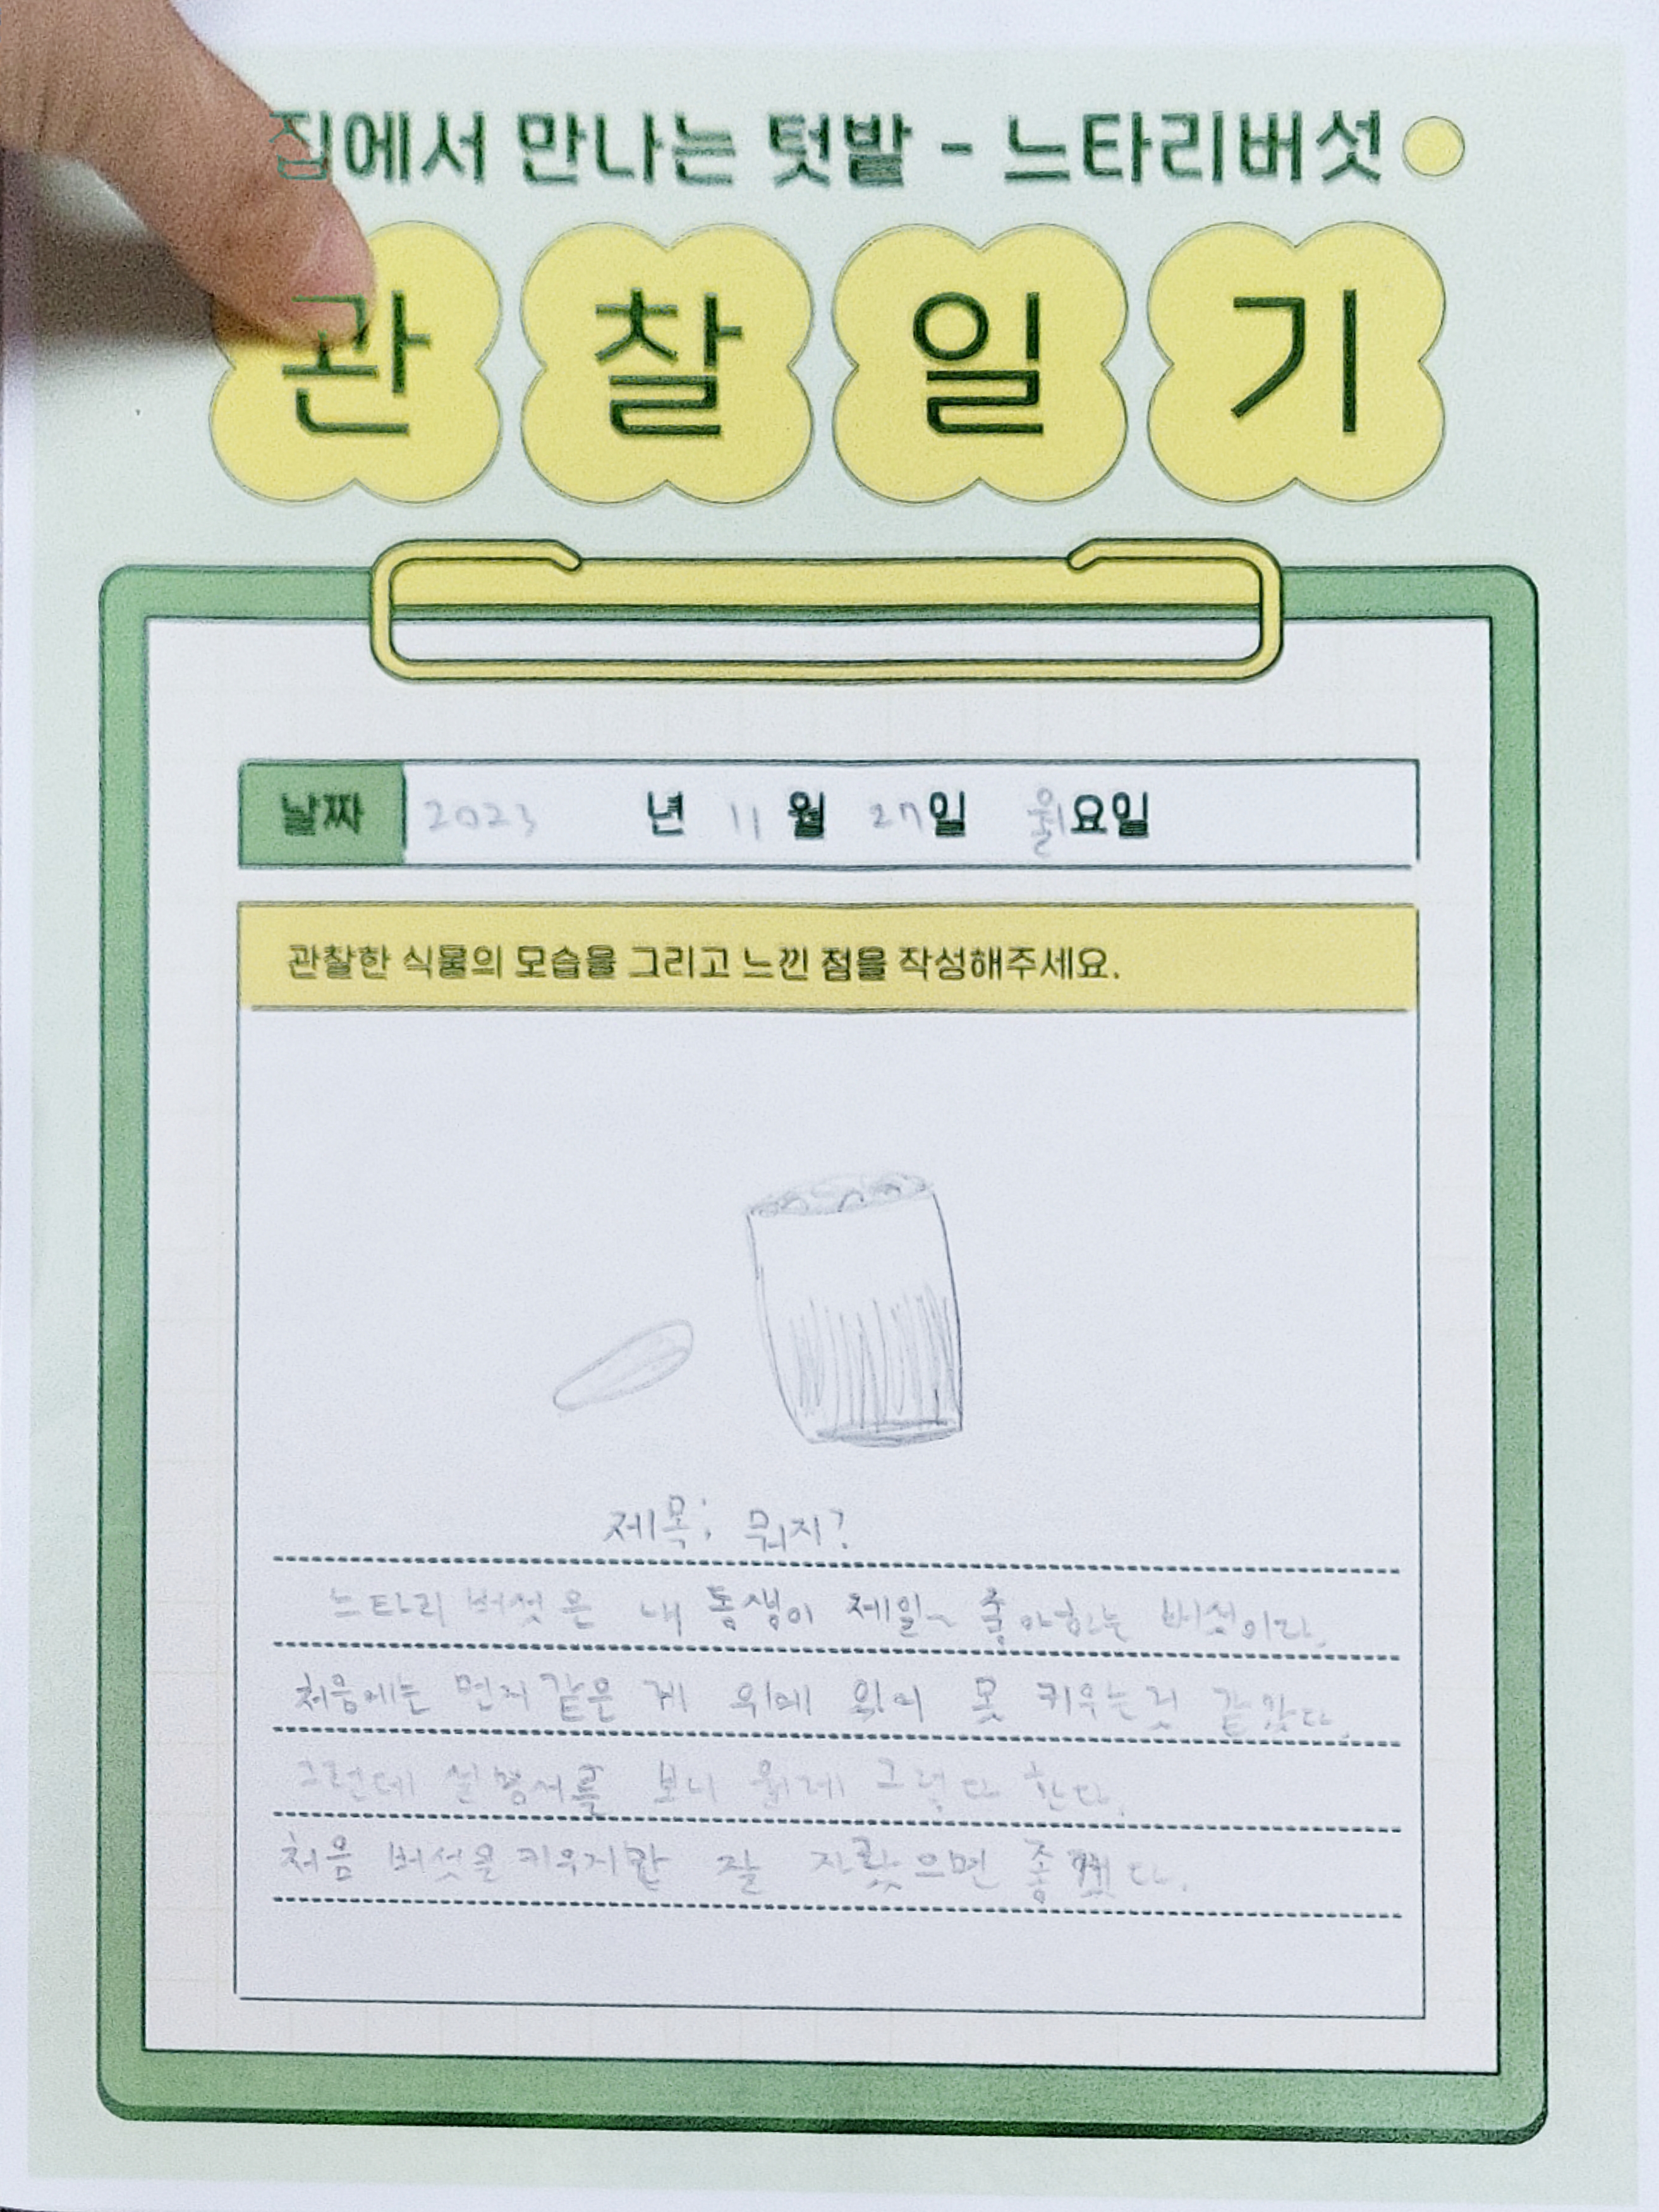 집에서 만나는 텃밭 - 느타리버섯
관찰일기
날짜 2023 년 11 월 27일 월요일
관찰한 식물의 모습을 그리고 느낀 점을 작성해주세요.
제목; 뭐지?
느타리 버섯은 내 동생이 제일~ 좋아하는 버섯이다.
처음에는 먼지 같은 게 위에 있어 못 키우는것 같았다.
그런데 설명서를 보니 원래 그렇다 한다.
처음 버섯을 키우지만 잘 자랐으면 좋겠다.